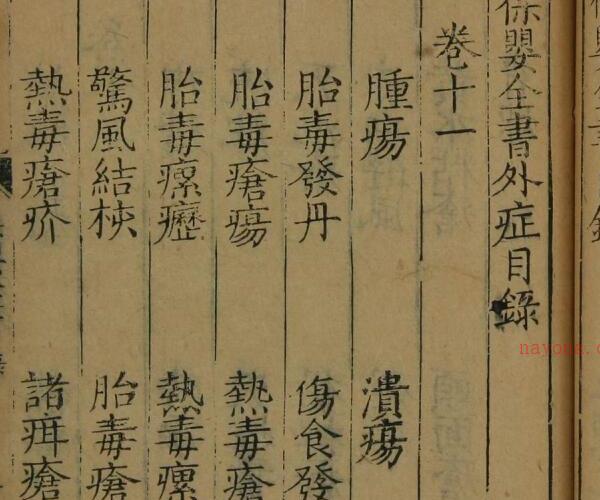 保嬰全書外症目錄
卷十一
腫瘍　潰瘍
胎毒發丹　傷食發
胎毒瘡瘍　熱毒瘡
胎毒瘰癧　熱毒瘰
驚風結核　胎毒瘡
熱毒瘡疥　諸疳瘡
nayona.c